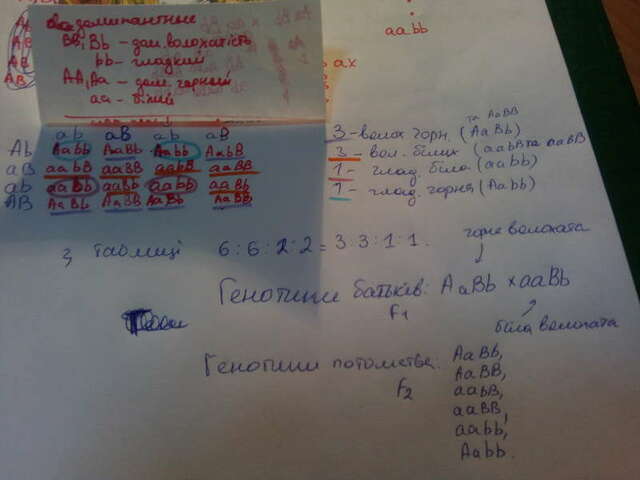 домінантные
BB, Bb – дом. волохатість
bb – гладкий
AA, Aa – дом. чорний
aa – білий
aabb
ах
ab aB ab aB
Ab Aabb AaBb Aabb AabB
aB aabB aaBB aabB aaBB
ab aabb aabb aabb aaBb
AB AaBb AaBB AaBb AaBB
3 – волох чорн. (AaBb) та AaBB
3 – вол. білих (aabB та aaBB
1 – глад. біла (aabb)
1 – глад. чорна (Aabb)
З таблиці 6:6:2:2 = 3:3:1:1.
чорне волохата
Генотипи батьків: AaBb x aaBb
F1
біла волохата
Генотипи потомства:
F2
AaBB,
AaBB,
aabB,
aaBB,
aabb,
Aabb.